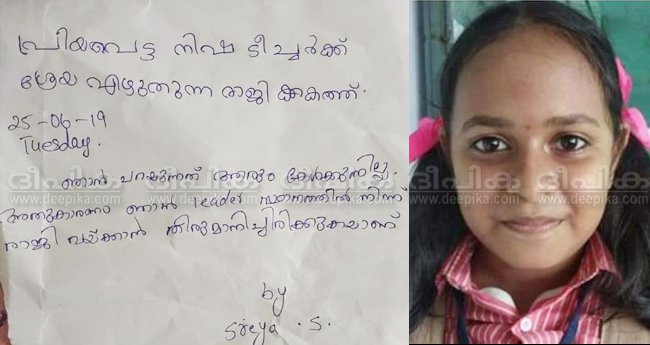 പ്രിയപെട്ട നിഷ ടീച്ചർക്ക്
ശ്രേയ എഴുതുന്ന രാജി ക്കത്ത്.
25-06-19
Tuesday.
ഞാൻ പറയുന്നത് ആരും കേൾക്കുന്നില്ല.
അതുകാരണം ഞാൻ leader സ്ഥാനത്തിൽ നിന്ന്
രാജി വയ്ക്കാൻ തിരുമാനിച്ചിരിക്കുകയാണ്
by
Sreya .S.
ദീപിക
www.deepika.com
ദീപിക
www.deepika.com
ദീപിക
www.deepika.com
ദീപിക
www.deepika.com